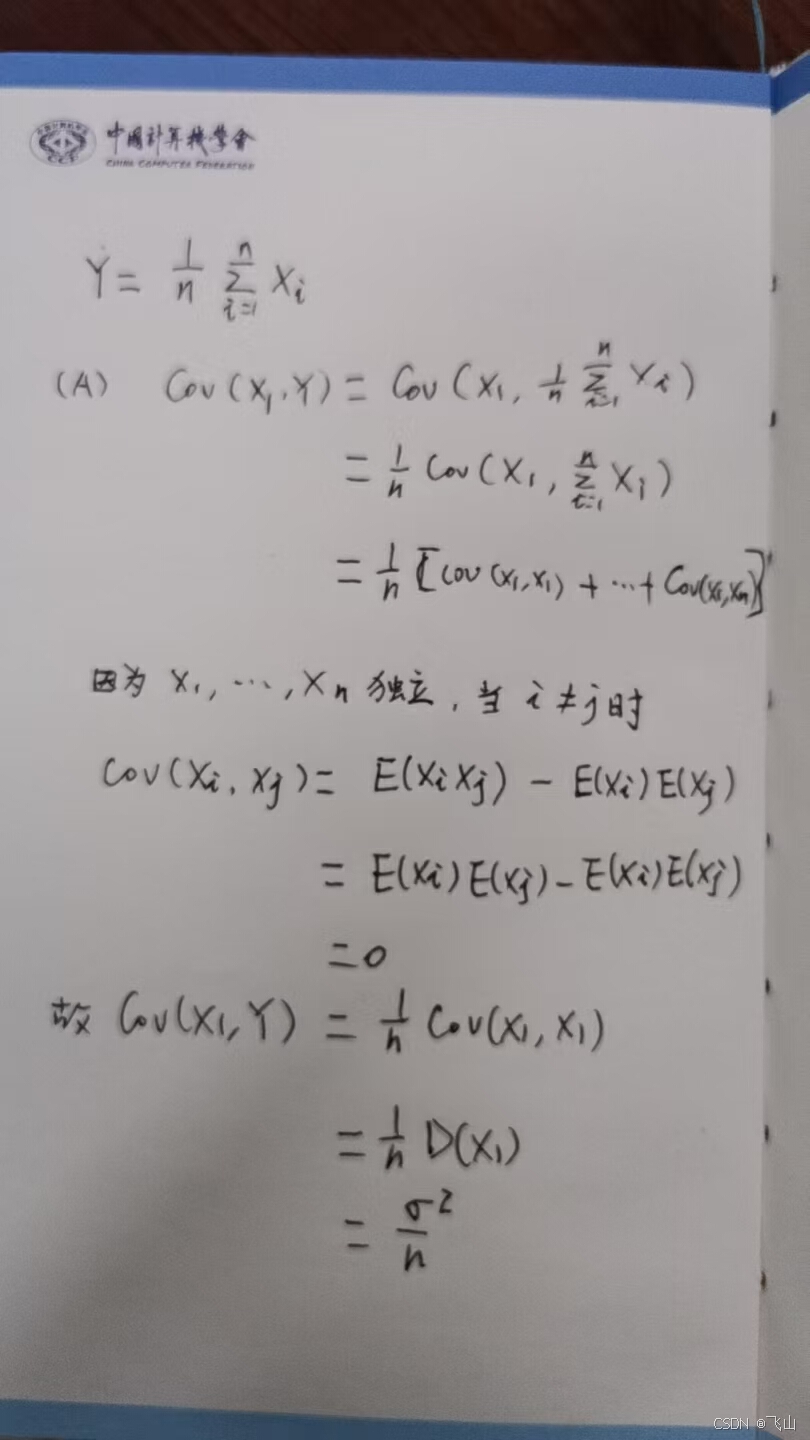 中国计算机学会
CHINA COMPUTER FEDERATION
Y = 1/n ∑_{i=1}^{n} X_i
(A) Cov(X_1, Y) = Cov(X_1, 1/n ∑_{i=1}^{n} X_i)
= 1/n Cov(X_1, ∑_{i=1}^{n} X_i)
= 1/n [Cov(X_1, X_1) + ⋯ + Cov(X_1, X_n)]
因为 X_1, ⋯, X_n 独立, 当 i ≠ j 时
Cov(X_i, X_j) = E(X_i X_j) - E(X_i)E(X_j)
= E(X_i)E(X_j) - E(X_i)E(X_j)
= 0
故 Cov(X_1, Y) = 1/n Cov(X_1, X_1)
= 1/n D(X_1)
= σ²/n
CSDN @飞山